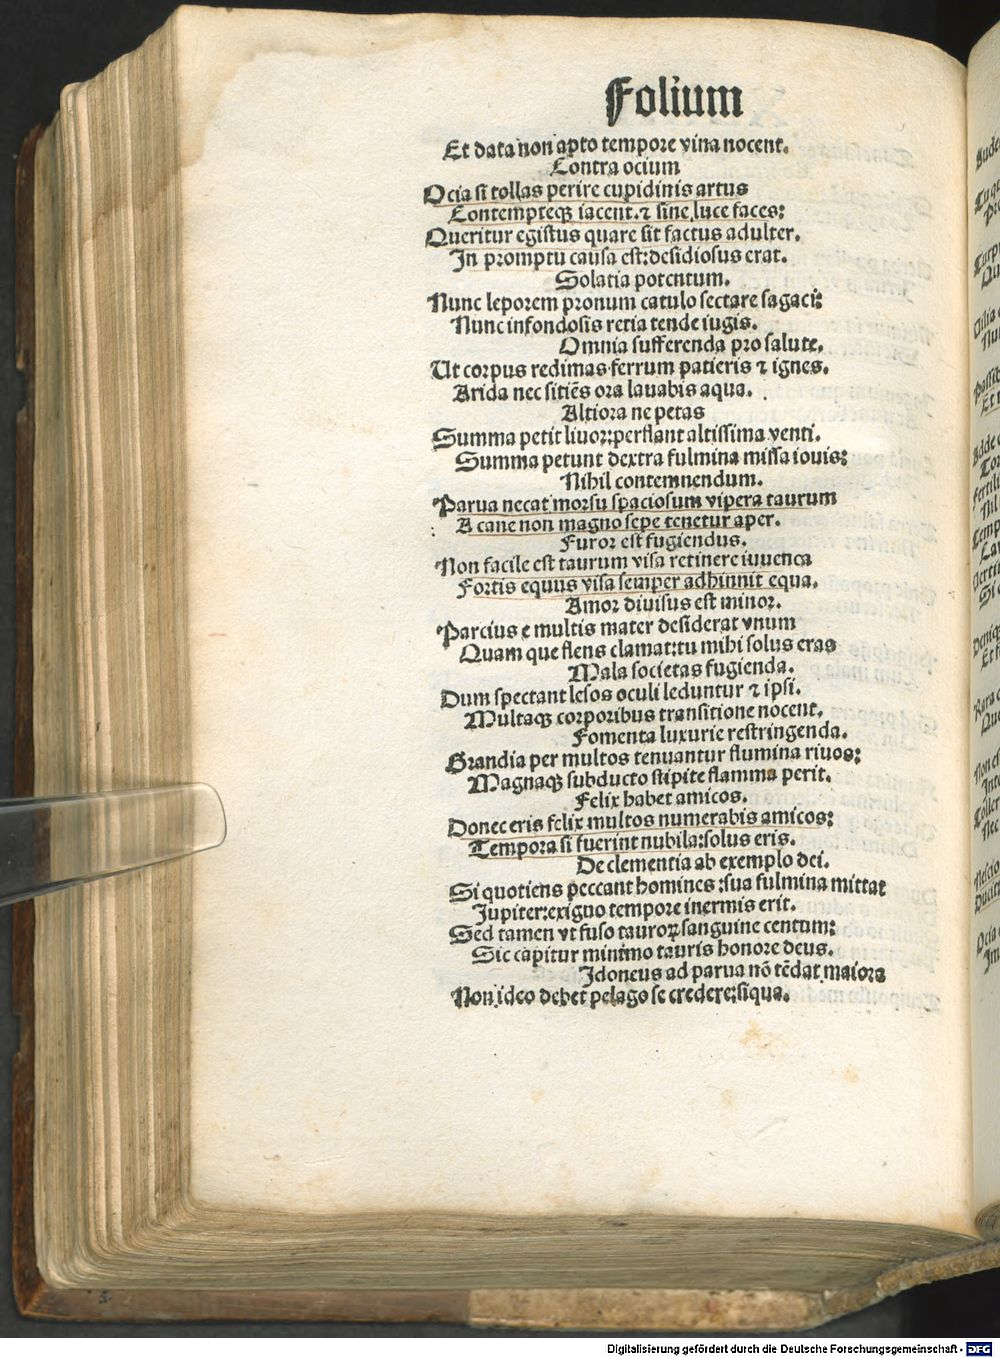 Folium
Et data non apto tempore vina nocent.
Contra ocium
Ocia si tollas perire cupidinis artus
Contempteqꝫ iacent.⁊ sine luce faces:
Queritur egistus quare sit factus adulter.
In promptu causa est:desidiosus erat.
Solatia potentum.
Nunc leporem pronum catulo sectare sagaci:
Nunc infondosis retia tende iugis.
Omnia sufferenda pro salute.
Ut corpus redimas ferrum patieris ⁊ ignes.
Arida nec sitiēs ora lauabis aqua.
Altiora ne petas
Summa petit liuor:perflant altissima venti.
Summa petunt dextra fulmina missa iouis:
Nihil contemnendum.
Parua necat morsu spaciosum vipera taurum
A cane non magno sepe tenetur aper.
Furor est fugiendus.
Non facile est taurum visa retinere iuuenca
Fortis equus visa semper adhinnit equa.
Amor diuisus est minor.
Parcius e multis mater desiderat vnum
Quam que flens clamat:tu mihi solus eras
Mala societas fugienda.
Dum spectant lesos oculi leduntur ⁊ ipsi.
Multaqꝫ corporibus transitione nocent.
Fomenta luxurie restringenda.
Grandia per multos tenuantur flumina riuos:
Magnaqꝫ subducto stipite flamma perit.
Felix habet amicos.
Donec eris felix multos numerabis amicos:
Tempora si fuerint nubila:solus eris.
De clementia ab exemplo dei.
Si quotiens peccant homines :sua fulmina mittat
Jupiter:exiguo tempore inermis erit.
Sed tamen vt fuso tauroꝝ sanguine centum:
Sic capitur minimo tauris honore deus.
Idoneus ad parua nō tēdat maiora
Non ideo debet pelago se credere:siqua.
Digitalisierung gefördert durch die Deutsche Forschungsgemeinschaft - DFG